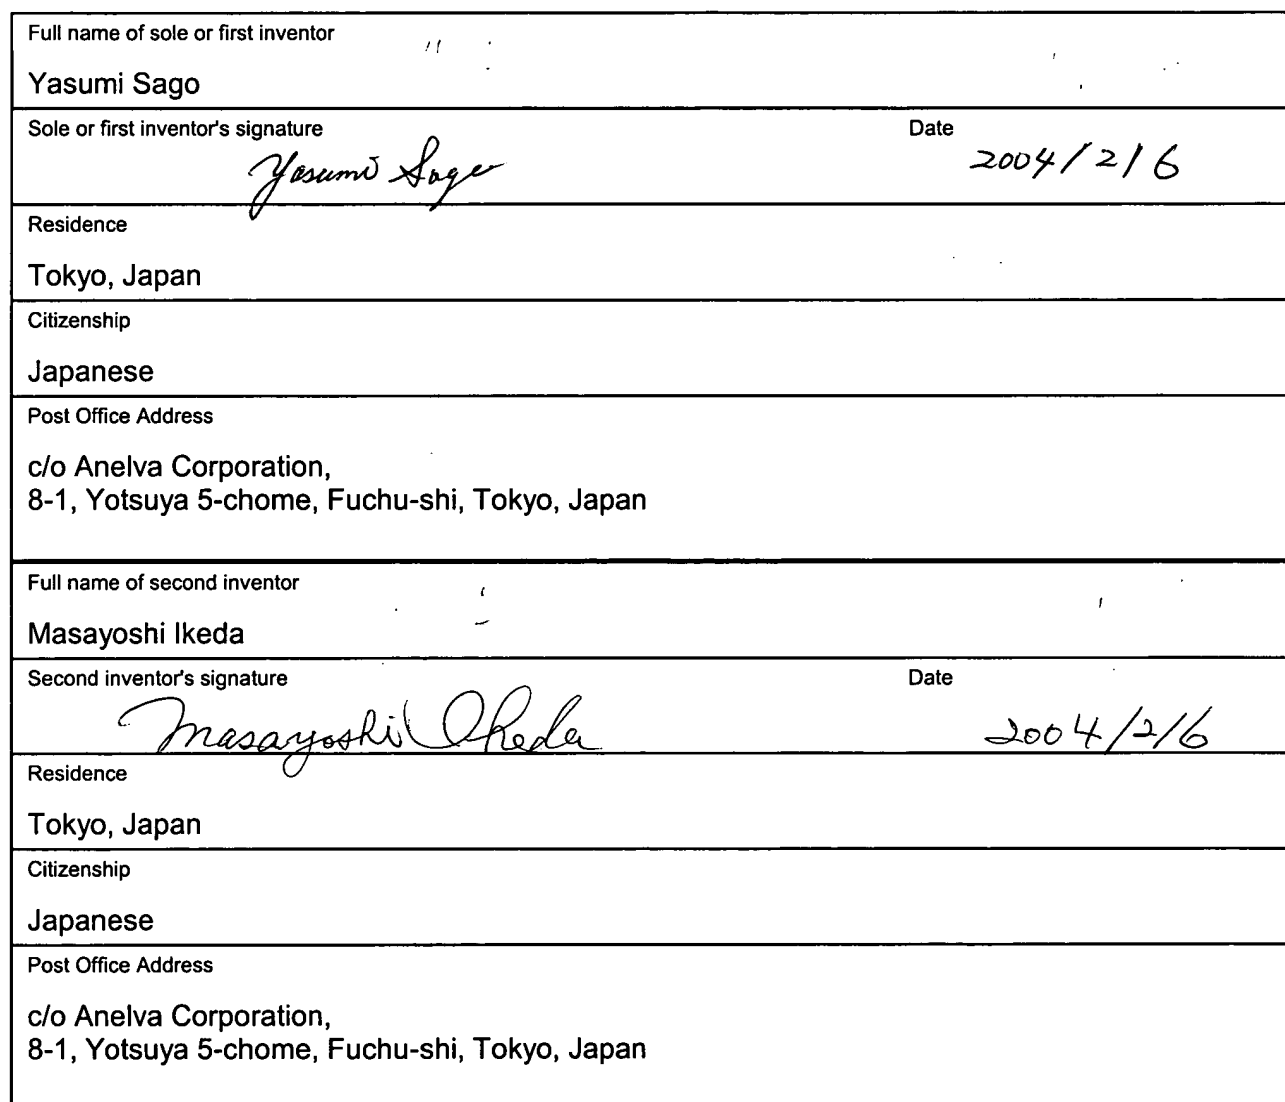 Full name of sole or first inventor
Yasumi Sago
Sole or first inventor's signature
Date
Yasumi Sago
2004/2/6
Residence
Tokyo, Japan
Citizenship
Japanese
Post Office Address
c/o Anelva Corporation,
8-1, Yotsuya 5-chome, Fuchu-shi, Tokyo, Japan
Full name of second inventor
Masayoshi Ikeda
Second inventor's signature
Date
Masayoshi Ikeda
2004/2/6
Residence
Tokyo, Japan
Citizenship
Japanese
Post Office Address
c/o Anelva Corporation,
8-1, Yotsuya 5-chome, Fuchu-shi, Tokyo, Japan